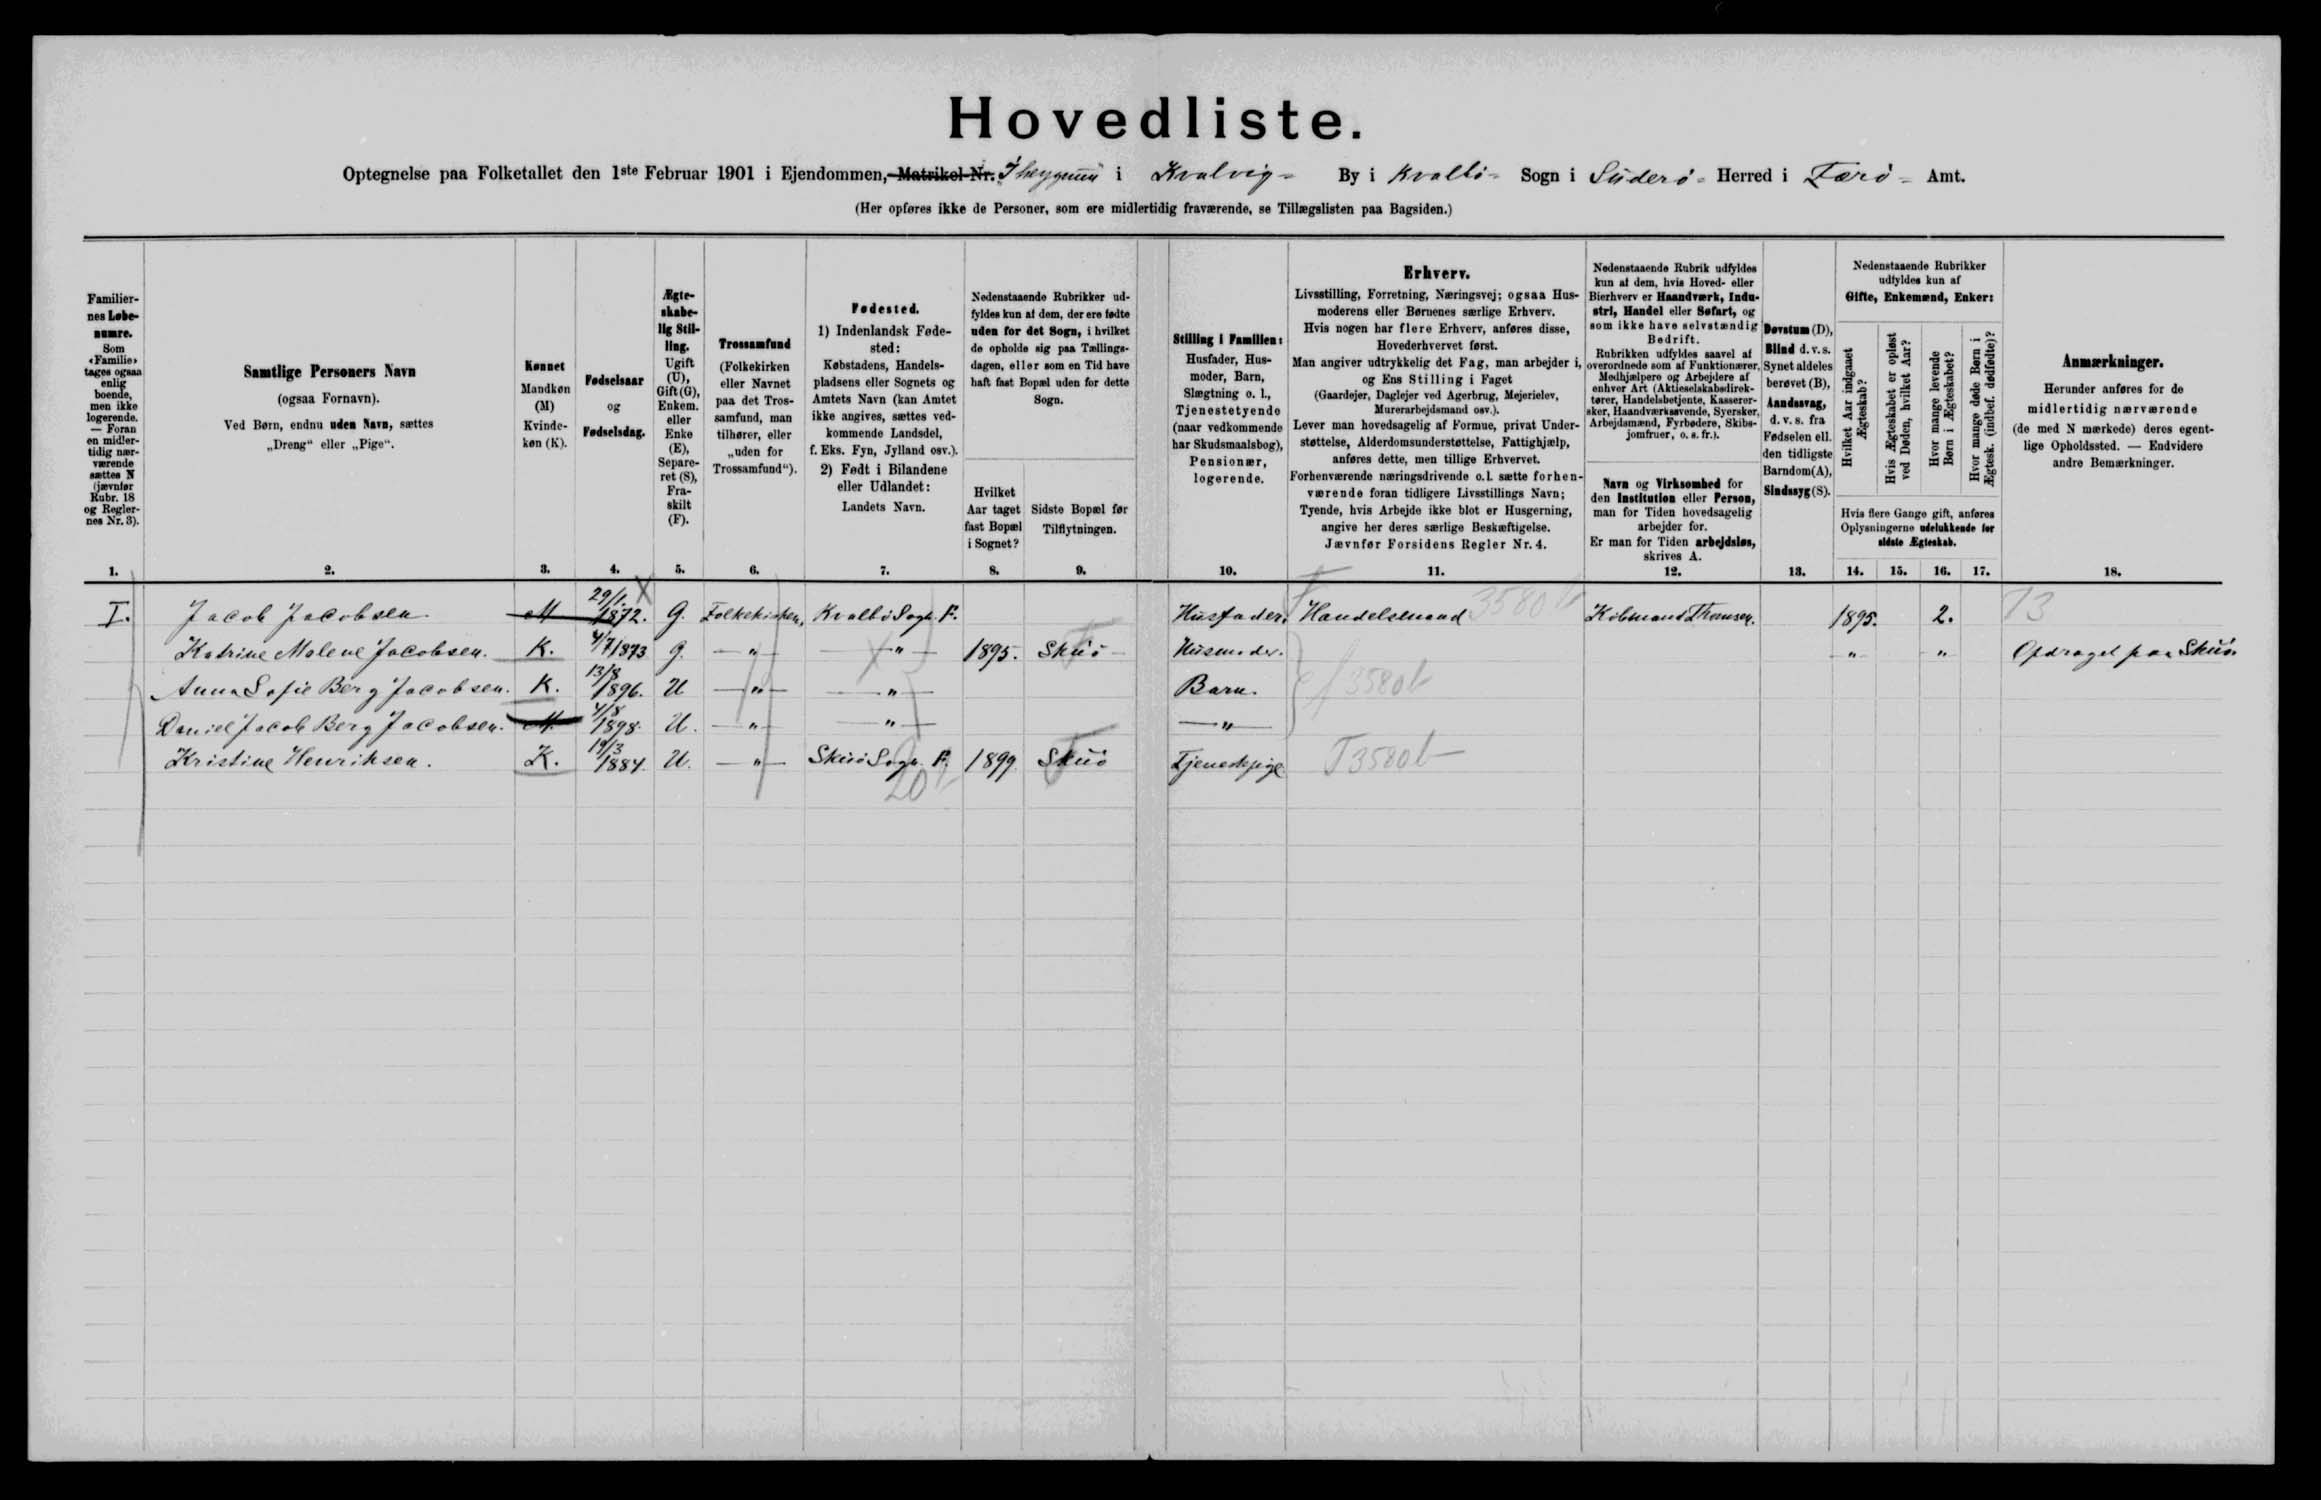 Hovedliste.
Optegnelse paa Folketallet den 1ste Februar 1901 i Ejendommen, Matrikel-Nr. i Kvalvig- By i Kvalbö- Sogn i Süderö- Herred i Færö- Amt.
(Her opføres ikke de Personer, som ere midlertidig fraværende, se Tillægslisten paa Bagsiden.)
Familier-
nes Løbe-
numre.
Som
«Familie»
tages ogsaa
enlig
boende,
men ikke
logerende.
— Foran
en midler-
tidig nær-
værende
sættes N
(jævnfør
Rubr. 18
og Regler-
nes Nr. 3).
1.
Samtlige Personers Navn
(ogsaa Fornavn).
Ved Børn, endnu uden Navn, sættes
„Dreng" eller „Pige".
2.
Kønnet
Mandkøn
(M)
Kvinde-
køn (K).
3.
Fødselsaar
og
Fødselsdag.
4.
Ægte-
skabe-
lig Stil-
ling.
Ugift
(U),
Gift (G),
Enkem.
eller
Enke
(E),
Separe-
ret (S),
Fra-
skilt
(F).
5.
Trossamfund
(Folkekirken
eller Navnet
paa det Tros-
samfund, man
tilhører, eller
„uden for
Trossamfund").
6.
Fødested.
1) Indenlandsk Føde-
sted:
Købstadens, Handels-
pladsens eller Sognets og
Amtets Navn (kan Amtet
ikke angives, sættes ved-
kommende Landsdel,
f. Eks. Fyn, Jylland osv.).
2) Født i Bilandene
eller Udlandet:
Landets Navn.
7.
Nedenstaaende Rubrikker ud-
fyldes kun af dem, der ere fødte
uden for det Sogn, i hvilket
de opholde sig paa Tællings-
dagen, eller som en Tid have
haft fast Bopæl uden for dette
Sogn.
Hvilket
Aar taget
fast Bopæl
i Sognet?
8.
Sidste Bopæl før
Tilflytningen.
9.
Stilling i Familien:
Husfader, Hus-
moder, Barn,
Slægtning o. l.,
Tjenestetyende
(naar vedkommende
har Skudsmaalsbog),
Pensionær,
logerende.
10.
Erhverv.
Livsstilling, Forretning, Næringsvej; ogsaa Hus-
moderens eller Børnenes særlige Erhverv.
Hvis nogen har flere Erhverv, anføres disse,
Hovederhvervet først.
Man angiver udtrykkelig det Fag, man arbejder i,
og Ens Stilling i Faget
(Gaardejer, Daglejer ved Agerbrug, Mejerielev,
Murerarbejdsmand osv.).
Lever man hovedsagelig af Formue, privat Under-
støttelse, Alderdomsunderstøttelse, Fattighjælp,
anføres dette, men tillige Erhvervet.
Forhenværende næringsdrivende o. l. sætte forhen-
værende foran tidligere Livsstillings Navn;
Tyende, hvis Arbejde ikke blot er Husgerning,
angive her deres særlige Beskæftigelse.
Jævnfør Forsidens Regler Nr. 4.
11.
Nedenstaaende Rubrik udfyldes
kun af dem, hvis Hoved- eller
Bierhverv er Haandværk, Indu-
stri, Handel eller Søfart, og
som ikke have selvstændig
Bedrift.
Rubrikken udfyldes saavel af
overordnede som af Funktionærer,
Medhjælpere og Arbejdere af
enhver Art (Aktieselskabsdirek-
tører, Handelsbetjente, Kasserer-
sker, Haandværkssvende, Syersker,
Arbejdsmænd, Fyrbødere, Skibs-
jomfruer, o. s. fr.).
Navn og Virksomhed for
den Institution eller Person,
man for Tiden hovedsagelig
arbejder for.
Er man for Tiden arbejdsløs,
skrives A.
12.
Døvstum (D),
Blind d. v. s.
Synet aldeles
berøvet (B),
Aandssvag,
d. v. s. fra
Fødselen ell.
den tidligste
Barndom (A),
Sindssyg (S).
13.
Nedenstaaende Rubrikker
udfyldes kun af
Gifte, Enkemænd, Enker:
Hvilket Aar indgaaet
Ægteskab?
Hvis Ægteskabet er opløst
ved Døden, hvilket Aar?
Hvor mange levende
Børn i Ægteskabet?
Hvor mange døde Børn i
Ægtesk. (indbef. dødfødte)?
Hvis flere Gange gift, anføres
Oplysningerne udelukkende for
sidste Ægteskab.
14. 15. 16. 17.
Anmærkninger.
Herunder anføres for de
midlertidig nærværende
(de med N mærkede) deres egent-
lige Opholdssted. — Endvidere
andre Bemærkninger.
18.
I. Jacob Jacobsen. M 29/1 1872. G. Folkekirken, Kvalbö Sogn F. Husfader. Handelsmand 3580 b Köbmand Thomsen. 1895. 2. 73
Katrine Malene Jacobsen. K. 4/7 1873 G. — " — — " — 1895. Sküö Husmoder. " " Opdraget paa Sküö.
Anna Sofie Berg Jacobsen. K. 13/8 1896. U — " — — " — Barn. f 3580 b
Daniel Jacob Berg Jacobsen. M. 4/8 1898. U. — " — — " — — " —
Kristine Henriksen. K. 19/3 1884. U. — " — Sküö Sogn F. 1899. Sküö Tjenestepige T 3580 b
20